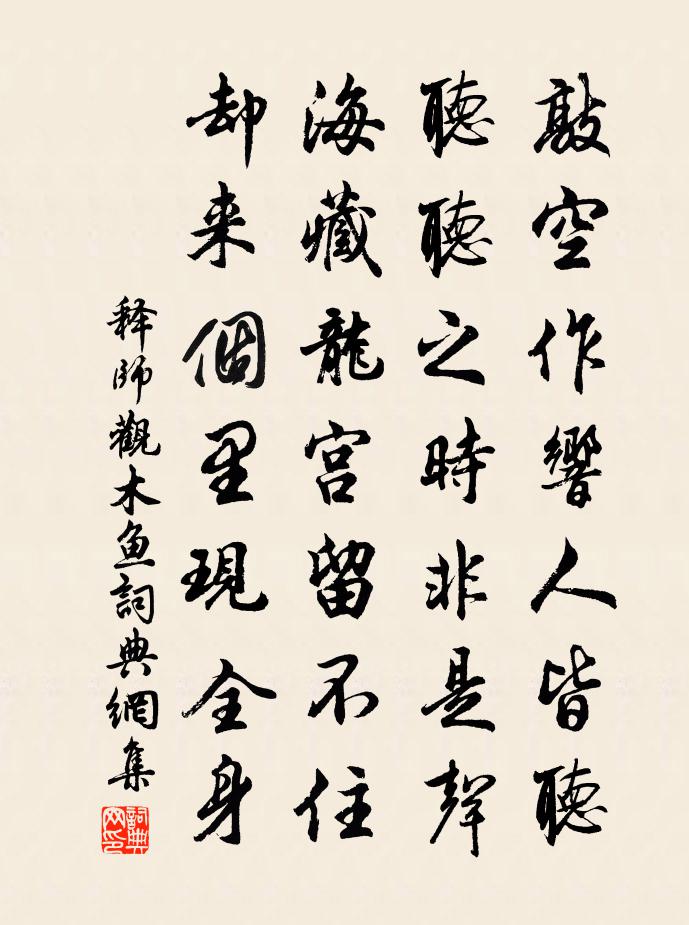 敲空作響人皆聽
聽聽之時非是聲
海藏龍宮留不住
却来個里現全身
释師觀木鱼詞典網集
詞典网印